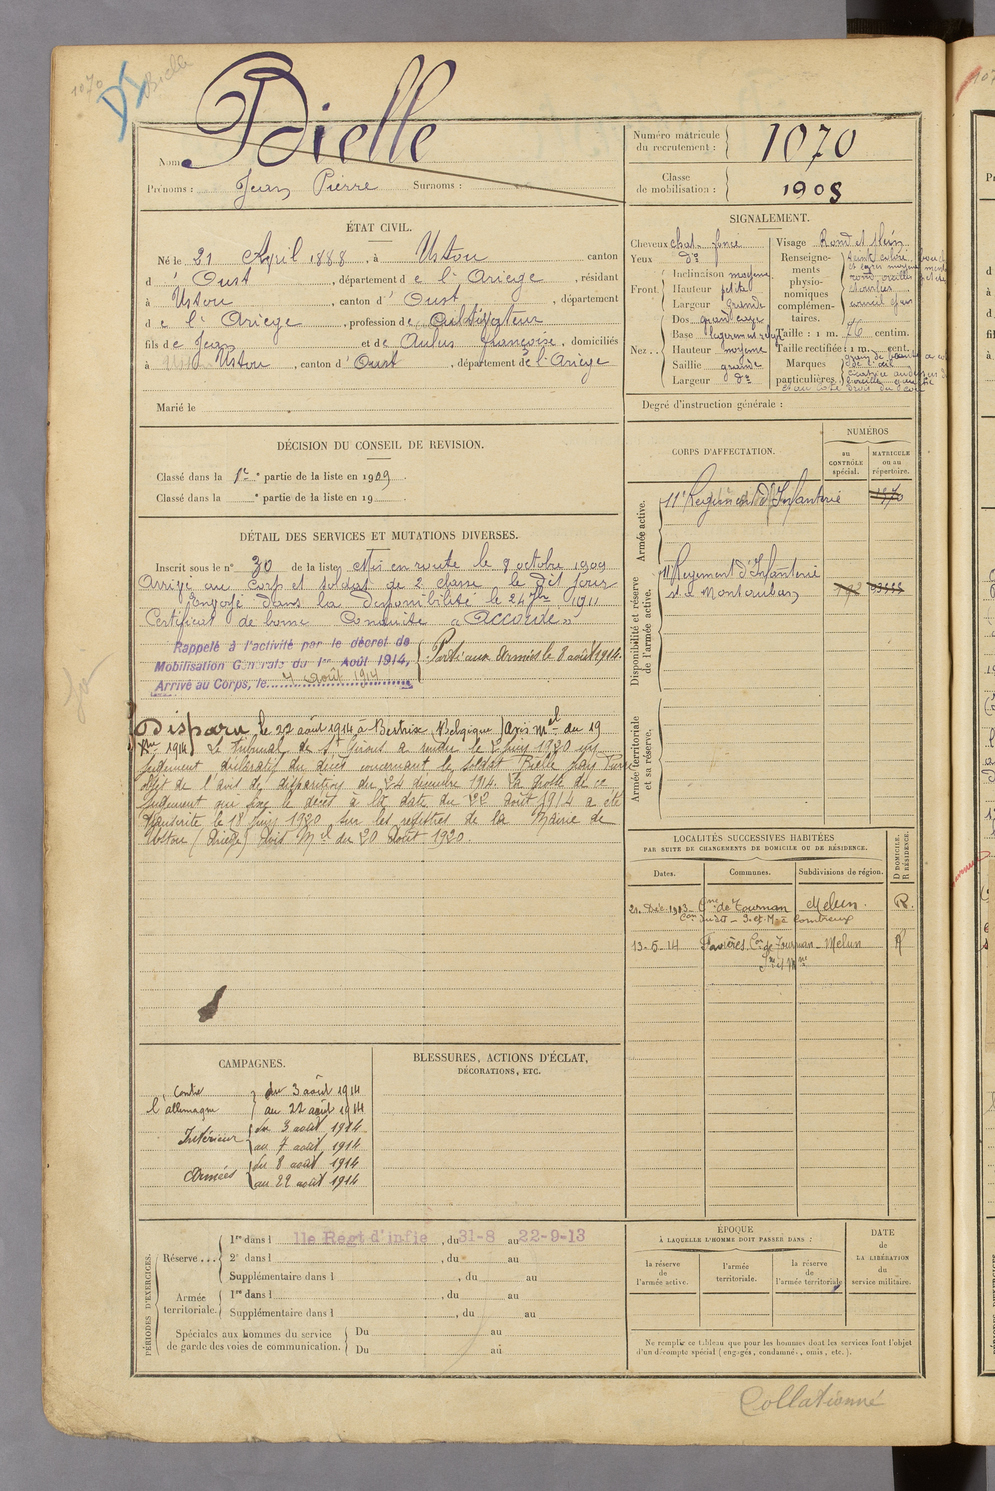 1070
Bielle
Nom : Bielle
Prénoms : Jean Pierre Surnoms :
Numéro matricule du recrutement : 1070
Classe de mobilisation : 1908
ÉTAT CIVIL.
Né le 21 Avril 1888, à Ustou canton
d' Oust, département de l'Ariège, résidant
à Ustou, canton d' Oust, département
de l'Ariège, profession de Cultivateur
fils de Jean et de Aulus françoise, domiciliés
à Ustou, canton d' Oust, département de l'Ariège
Marié le
SIGNALEMENT.
Cheveux chat. foncé
Yeux do
Front. Inclinaison moyenne
Hauteur petite
Largeur grande
Nez... Dos
Base
Hauteur moyenne
Saillie grande
Largeur do
Visage Rond et plein
Renseignements physionomiques complémentaires.
Taille : 1 m. centim.
Taille rectifiée : 1 m. cent.
Marques particulières.
Degré d'instruction générale :
DÉCISION DU CONSEIL DE REVISION.
Classé dans la 1re partie de la liste en 1909.
Classé dans la e partie de la liste en 19
DÉTAIL DES SERVICES ET MUTATIONS DIVERSES.
Inscrit sous le n° 30 de la liste Mis en route le 8 octobre 1909
Arrivé au Corps et soldat de 2e classe le dit jour
Envoyé dans la disponibilité le 24 7bre 1911
Certificat de bonne Conduite « ACCORDÉ »
Rappelé à l'activité par le décret de
Mobilisation Générale du 1er Août 1914,
Arrivé au Corps, le 4 Août 1914
Parti aux Armées le 8 août 1914.
Disparu le 22 août 1914 à Bertrix (Belgique) Avis Mel du 19
Xbre 1914 Le tribunal de St Girons a rendu le 2 juin 1920 un
jugement déclaratif du décès concernant le soldat Bielle Jean Pierre
objet de l'avis de disparition du 24 décembre 1914. La grosse de ce
jugement qui fixe le décès à la date du 22 août 1914 a été
transcrite le 18 juin 1920 sur les registres de la Mairie de
Ustou (Ariège) Avis Mel du 20 Août 1920
CORPS D'AFFECTATION.
NUMÉROS
au CONTRÔLE spécial.
MATRICULE ou au répertoire.
Armée active.
11e Régiment d'Infanterie
Disponibilité et réserve de l'armée active.
11e Régiment d'Infanterie
st à Montauban
Armée territoriale et sa réserve.
LOCALITÉS SUCCESSIVES HABITÉES
PAR SUITE DE CHANGEMENTS DE DOMICILE OU DE RÉSIDENCE.
Dates. Communes. Subdivisions de région. D DOMICILE. R RÉSIDENCE.
21. Déc. 1913 de Tournan Melun. R.
Con dudit - S. et M. à Combreux
13-5-14 Favières Con de Tournan - Melun R
CAMPAGNES.
Contre l'allemagne du 3 août 1914
au 22 août 1914
Intérieur du 3 août 1914
au 7 août 1914
Armées du 8 août 1914
au 22 août 1914
BLESSURES, ACTIONS D'ÉCLAT,
DÉCORATIONS, ETC.
PÉRIODES D'EXERCICES.
Réserve... 1re dans l 11e Régt d'infie, du 31-8 au 22-9-13
2e dans l , du au
Supplémentaire dans l , du au
Armée territoriale. 1re dans l , du au
Supplémentaire dans l , du au
Spéciales aux hommes du service Du au
de garde des voies de communication. Du au
ÉPOQUE
À LAQUELLE L'HOMME DOIT PASSER DANS :
la réserve de l'armée active.
l'armée territoriale.
la réserve de l'armée territoriale
DATE
de
LA LIBÉRATION
du
service militaire.
Ne remplir ce tableau que pour les hommes dont les services font l'objet
d'un décompte spécial (engagés, condamnés, omis, etc.).
Collationné